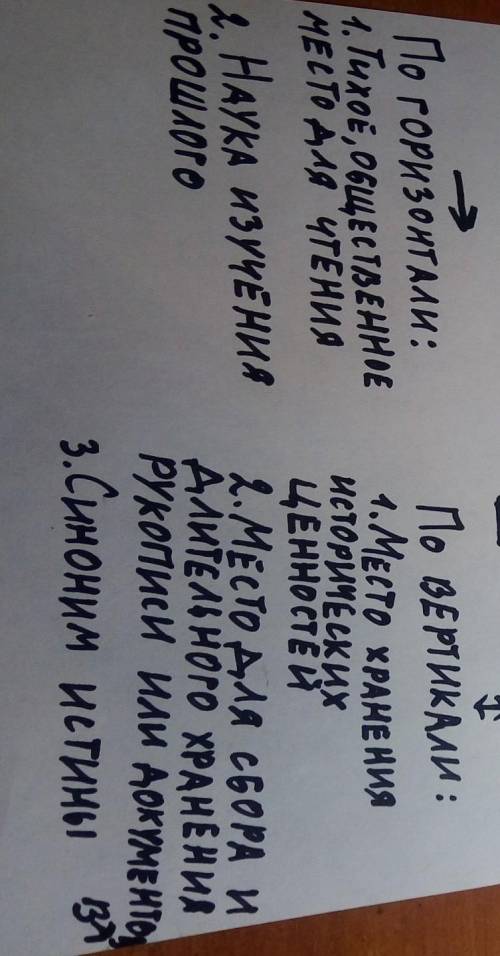 По горизонтали:
1. Тихое, общественное
место для чтения
2. Наука изучения
прошлого
По вертикали:
1. Место хранения
исторических
ценностей
2. Место для сбора и
длительного хранения
рукописи или документов
3. Синоним истины